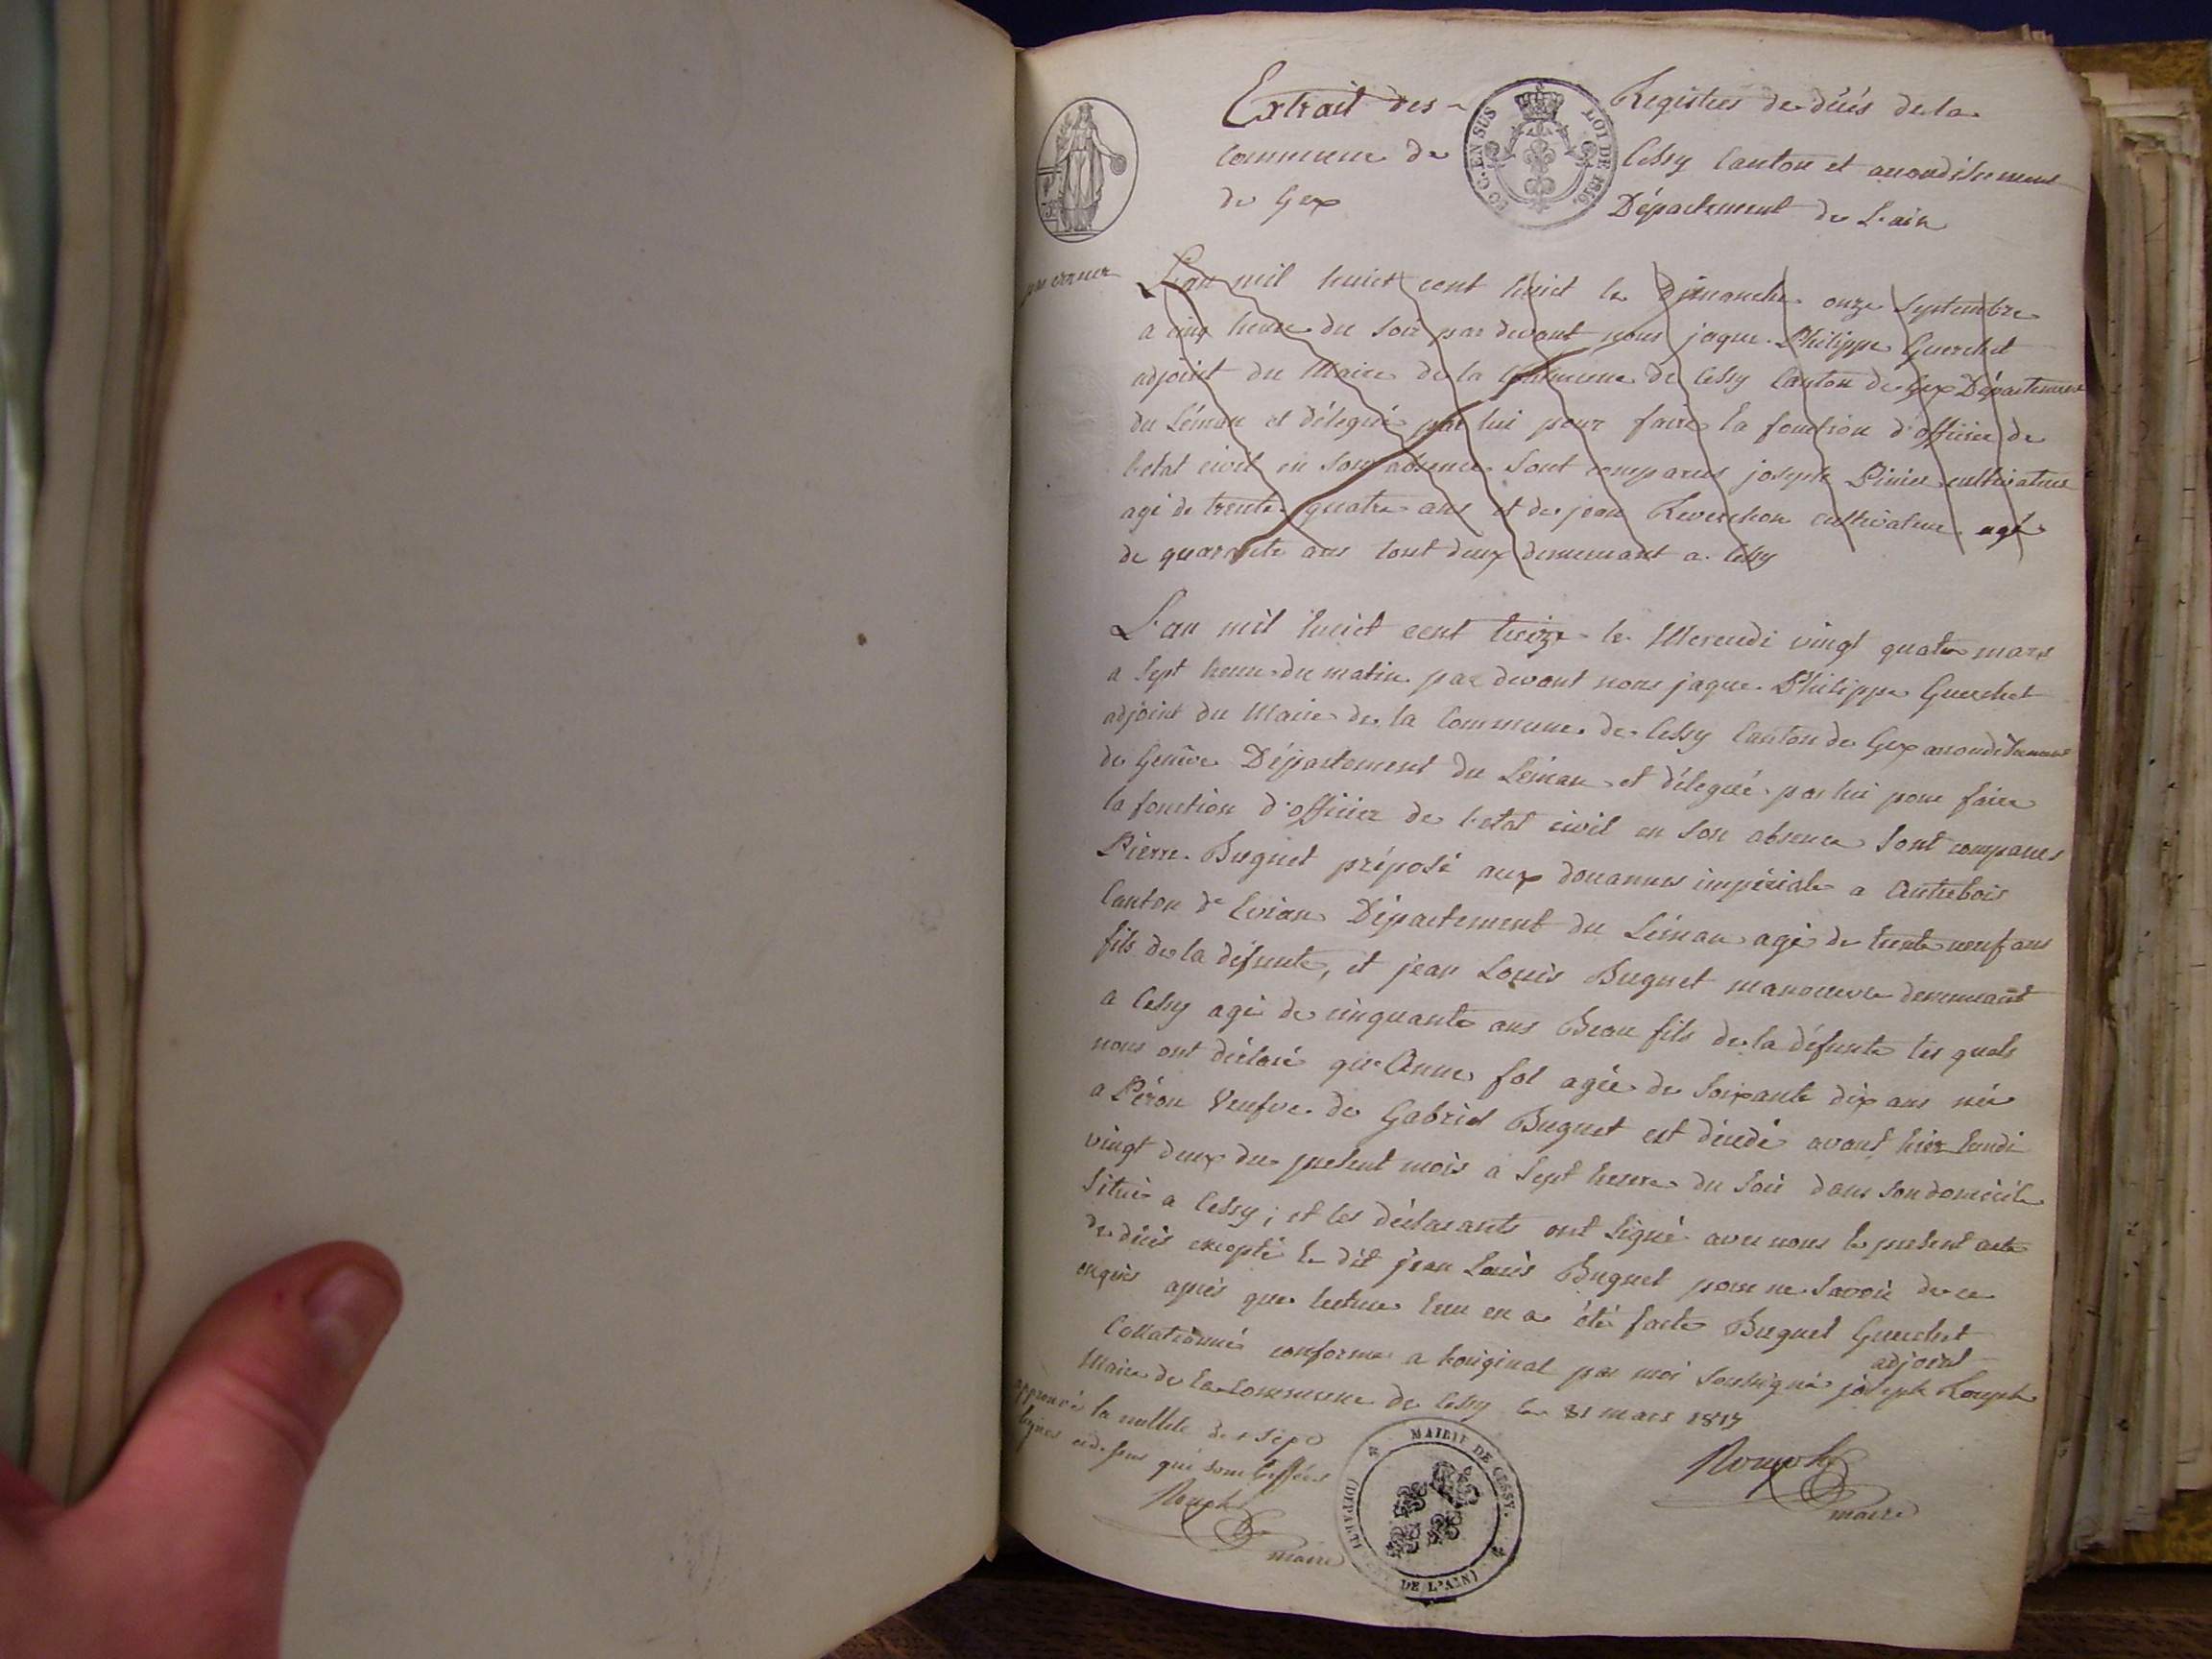 Extrait des Registres de décès de la
commune de Cessy Canton et arondissement
de Gex Département de L'ain
EN SUS LOI DE 1816.
par erreur
L'an mil huict cent huict le Dimanche onze Septembre
a cinq heure du soir par devant nous jaque Philippe Guerchet
adjoint du Maire de la commune de Cessy Canton de Gex Département
du Léman et délegué par lui pour faire la fonction d'officier de
l'etat civil en son absence Sont comparus joseph cultivateur
agé de trente quatre ans et de jean Reverchon cultivateur agé
de quarante ans tout deux demeurant a Cessy
L'an mil huict cent treize le Mercredi vingt quatre mars
a Sept heure du matin par devant nous jaque Philippe Guerchet
adjoint du Maire de la Commune de Cessy Canton de Gex arondissement
de Genève Département du Léman et délegué par lui pour faire
la fonction d'officier de l'etat civil en son absence Sont comparus
Pierre Buguet préposé aux douannes impériale a
Canton d'Evian Département du Léman agé de trente neuf ans
fils de la défunte, et jean Louis Buguet manoeuvre demeurant
a Cessy agé de cinquante ans Beau fils de la défunte les quels
nous ont déclaré que Anne fol agée de Soixante dix ans née
a Péron Veufve de Gabriel Buguet est décédé avant hier lundi
vingt deux du present mois a Sept heure du Soir dans son domicile
Situé a Cessy ; et les déclarants ont Signé avec nous le present acte
de décès excepté le dit jean Louis Buguet pour ne Savoir de ce
enquis apres que lecture leur en a été faite Buguet Guerchet
adjoint
Collationné conforme a l'original par moi Soussigné joseph Rouph
Maire de la Commune de Cessy le 31 mars 1817
approuvé la nullité des sept
lignes cidessus qui sont biffées
Rouph
maire
Rouph
maire
MAIRIE DE CESSY.
(DÉPARTEMENT DE L'AIN)